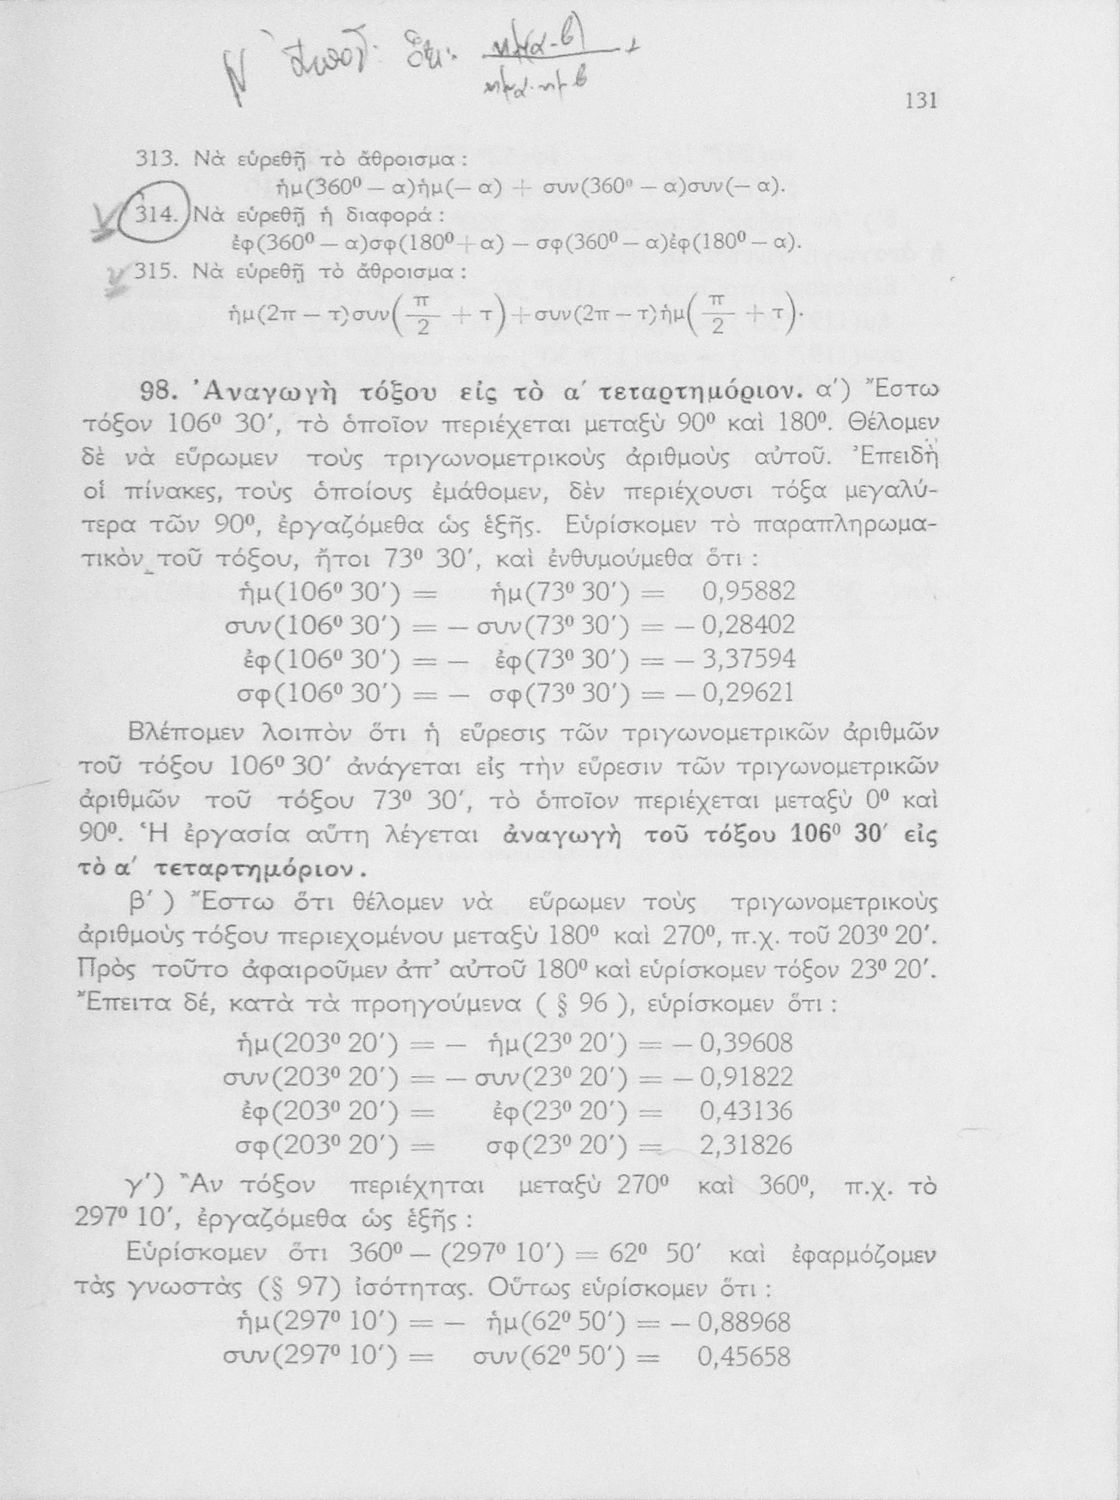 131
313. Νὰ εὑρεθῇ τὸ ἄθροισμα :
ἡμ(360⁰ — α)ἡμ(— α) + συν(360⁰ — α)συν(— α).
314. Νὰ εὑρεθῇ ἡ διαφορά :
ἐφ(360⁰ — α)σφ(180⁰ + α) — σφ(360⁰ — α)ἐφ(180⁰ — α).
315. Νὰ εὑρεθῇ τὸ ἄθροισμα :
ἡμ(2π — τ)συν(π/2 + τ) + συν(2π — τ)ἡμ(π/2 + τ).
98. Ἀναγωγὴ τόξου εἰς τὸ α′ τεταρτημόριον. α′) Ἔστω
τόξον 106⁰ 30′, τὸ ὁποῖον περιέχεται μεταξὺ 90⁰ καὶ 180⁰. Θέλομεν
δὲ νὰ εὕρωμεν τοὺς τριγωνομετρικοὺς ἀριθμοὺς αὐτοῦ. Ἐπειδὴ
οἱ πίνακες, τοὺς ὁποίους ἐμάθομεν, δὲν περιέχουσι τόξα μεγαλύ-
τερα τῶν 90⁰, ἐργαζόμεθα ὡς ἑξῆς. Εὑρίσκομεν τὸ παραπληρωμα-
τικὸν τοῦ τόξου, ἤτοι 73⁰ 30′, καὶ ἐνθυμούμεθα ὅτι :
ἡμ(106⁰ 30′) = ἡμ(73⁰ 30′) = 0,95882
συν(106⁰ 30′) = — συν(73⁰ 30′) = — 0,28402
ἐφ(106⁰ 30′) = — ἐφ(73⁰ 30′) = — 3,37594
σφ(106⁰ 30′) = — σφ(73⁰ 30′) = — 0,29621
Βλέπομεν λοιπὸν ὅτι ἡ εὕρεσις τῶν τριγωνομετρικῶν ἀριθμῶν
τοῦ τόξου 106⁰ 30′ ἀνάγεται εἰς τὴν εὕρεσιν τῶν τριγωνομετρικῶν
ἀριθμῶν τοῦ τόξου 73⁰ 30′, τὸ ὁποῖον περιέχεται μεταξὺ 0⁰ καὶ
90⁰. Ἡ ἐργασία αὕτη λέγεται ἀναγωγὴ τοῦ τόξου 106⁰ 30′ εἰς
τὸ α′ τεταρτημόριον.
β′ ) Ἔστω ὅτι θέλομεν νὰ εὕρωμεν τοὺς τριγωνομετρικοὺς
ἀριθμοὺς τόξου περιεχομένου μεταξὺ 180⁰ καὶ 270⁰, π.χ. τοῦ 203⁰ 20′.
Πρὸς τοῦτο ἀφαιροῦμεν ἀπ' αὐτοῦ 180⁰ καὶ εὑρίσκομεν τόξον 23⁰ 20′.
Ἔπειτα δέ, κατὰ τὰ προηγούμενα ( § 96 ), εὑρίσκομεν ὅτι :
ἡμ(203⁰ 20′) = — ἡμ(23⁰ 20′) = — 0,39608
συν(203⁰ 20′) = — συν(23⁰ 20′) = — 0,91822
ἐφ(203⁰ 20′) = ἐφ(23⁰ 20′) = 0,43136
σφ(203⁰ 20′) = σφ(23⁰ 20′) = 2,31826
γ′) Ἂν τόξον περιέχηται μεταξὺ 270⁰ καὶ 360⁰, π.χ. τὸ
297⁰ 10′, ἐργαζόμεθα ὡς ἑξῆς :
Εὑρίσκομεν ὅτι 360⁰ — (297⁰ 10′) = 62⁰ 50′ καὶ ἐφαρμόζομεν
τὰς γνωστὰς (§ 97) ἰσότητας. Οὕτως εὑρίσκομεν ὅτι :
ἡμ(297⁰ 10′) = — ἡμ(62⁰ 50′) = — 0,88968
συν(297⁰ 10′) = συν(62⁰ 50′) = 0,45658